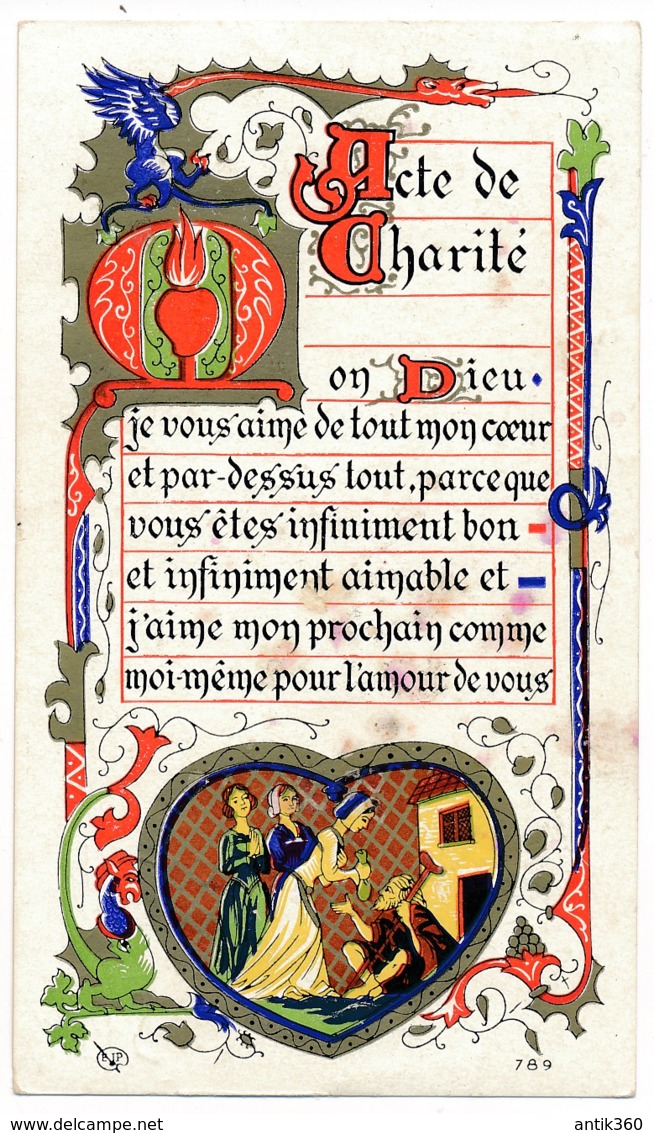 Acte de
Charité
Mon Dieu
je vous aime de tout mon cœur
et par-dessus tout, parce que
vous êtes infiniment bon
et infiniment aimable et
j'aime mon prochain comme
moi-même pour l'amour de vous
789
delcampe.net
antik360